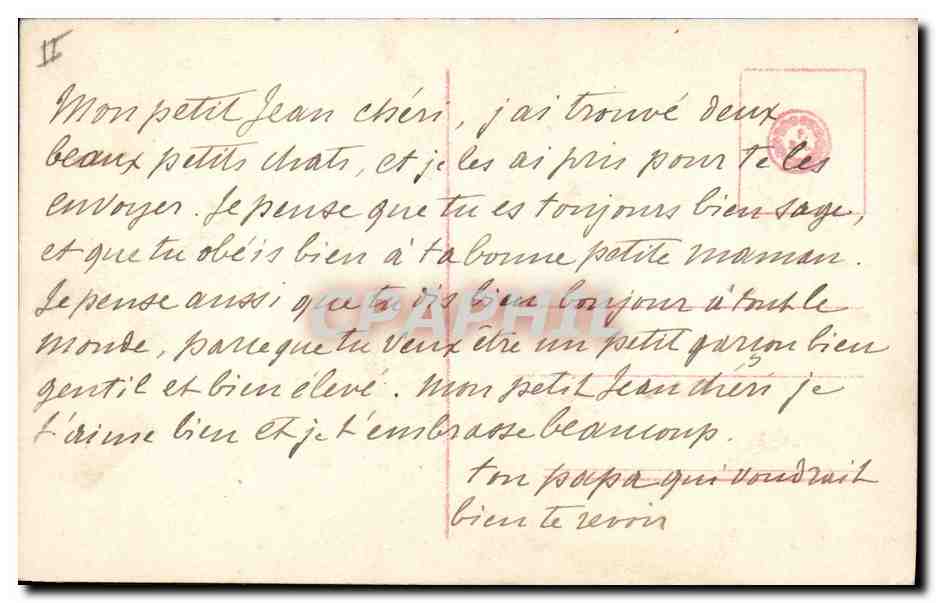 II
Mon petit Jean chéri, j'ai trouvé deux
beaux petits chats, et je les ai pris pour te les
envoyer. Je pense que tu es toujours bien sage,
et que tu obéis bien à ta bonne petite maman.
Je pense aussi que tu dis bien bonjour à tout le
CPAPHIL
monde, parce que tu veux être un petit garçon bien
gentil et bien élevé. Mon petit Jean chéri je
t'aime bien et je t'embrasse beaucoup.
ton papa qui voudrait
bien te revoir